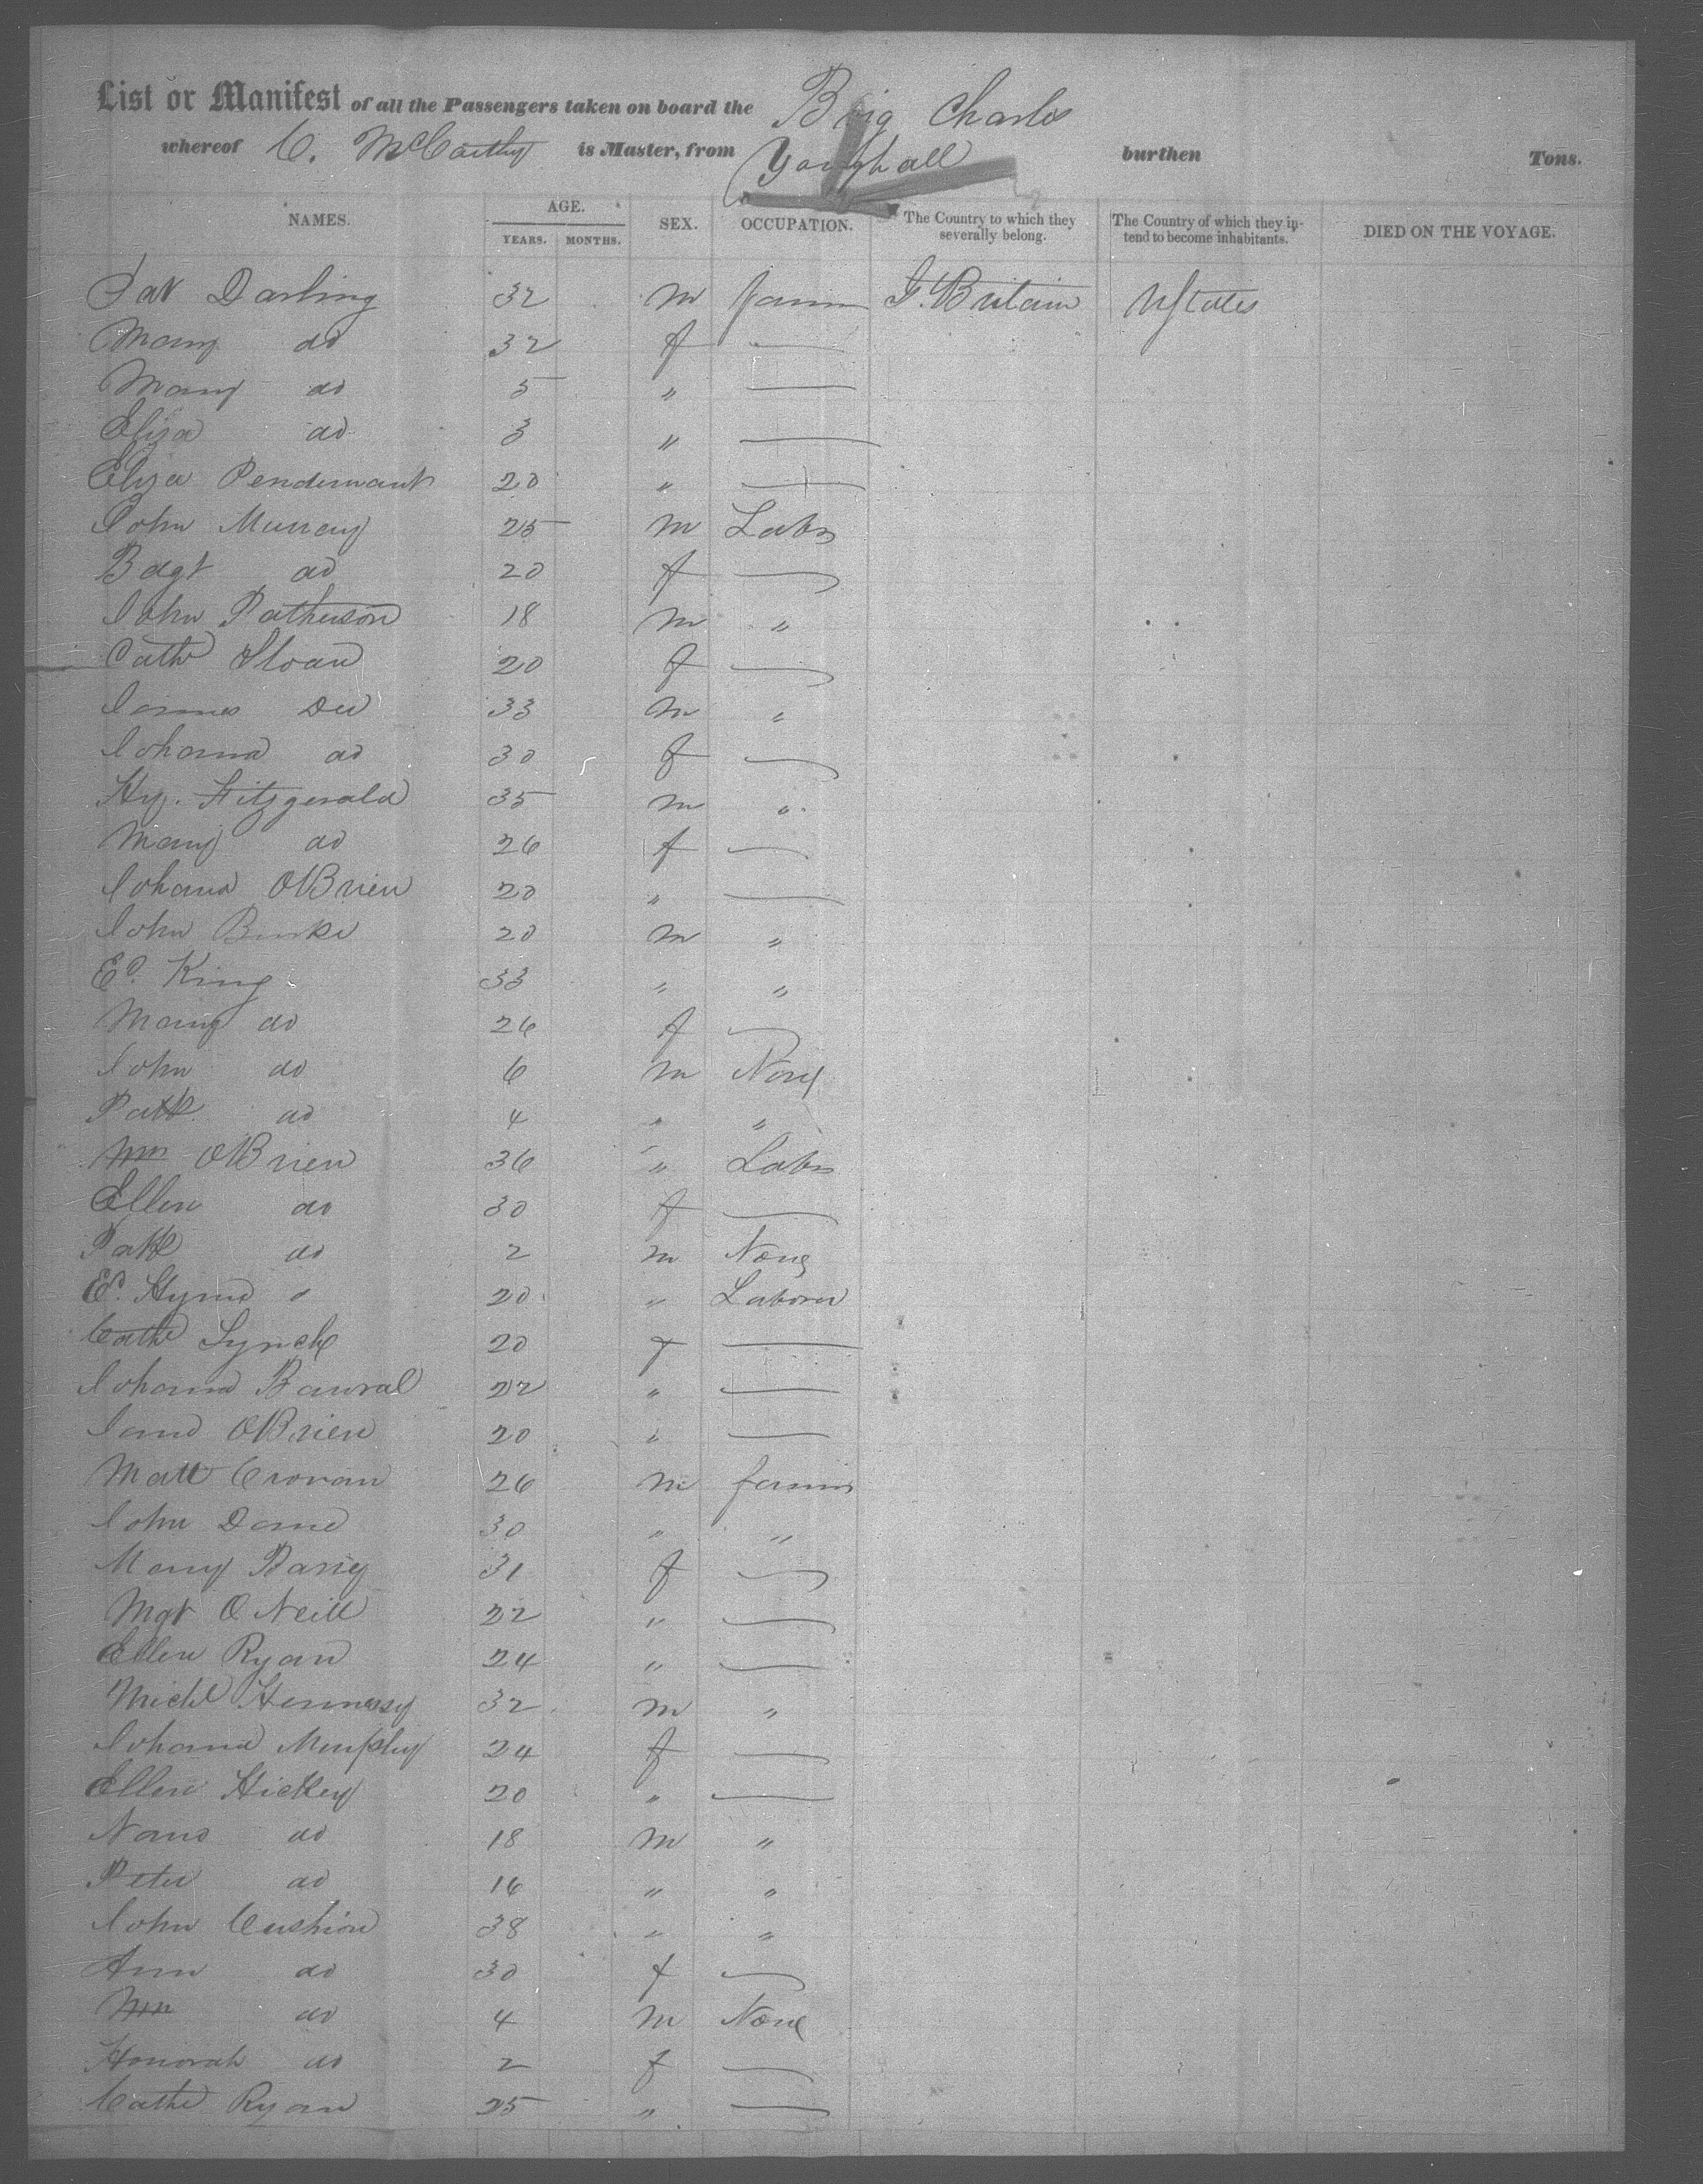 List or Manifest of all the Passengers taken on board the Brig Charles
whereof C. McCarthy is Master, from Youghall burthen Tons.
NAMES. AGE. YEARS. MONTHS. SEX. OCCUPATION. The Country to which they severally belong. The Country of which they intend to become inhabitants. DIED ON THE VOYAGE.
Pat Darling 32 m farmer G. Britain U States
Mary do 32 f —
Mary do 5 " —
Eliza do 3 " —
Eliza 20 " —
John Murray 25 m Labr
Bdgt do 20 f —
John Patherson 18 m "
Cath Sloan 20 f —
James 33 m "
Johana do 30 f —
Hy. Fitzgerald 35 m "
Mary do 26 f —
Johana OBrien 20 " —
John Burke 20 m "
Ed. King 33 " "
Mary do 26 f —
John do 6 m None
Patk do 4 " "
Wm OBrien 36 " Labr
Ellen do 30 f —
Patk do 2 m None
Ed. 20 " Laborer
Cath Lynch 20 f —
Johana 22 " —
Jane OBrien 20 " —
Matt Cronan 26 m farmer
John 30 " "
Mary Barry 31 f —
Mgt O Neill 22 " —
Ellen Ryan 24 " —
Michl Hennessy 32 m "
Johana Murphy 24 f —
Ellen Hickey 20 " —
do 18 m "
Peter do 16 " "
John Cushion 38 " "
Ann do 30 f —
Wm do 4 m None
Honorah do 2 f —
Cathe Ryan 25 " —